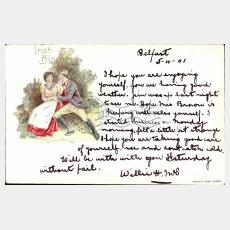 Irish
Blarney
Belfast
5-4-05
I hope you are enjoying
yourself, you are having good
weather. Jim was up last night
to see me. Hope Mrs Brown is
keeping well also yourself. I
started business on Monday
morning, felt a little bit strange
I hope you are taking good care
of yourself, see and not catch cold.
Will be with you Saturday
without fail.
Willie H.